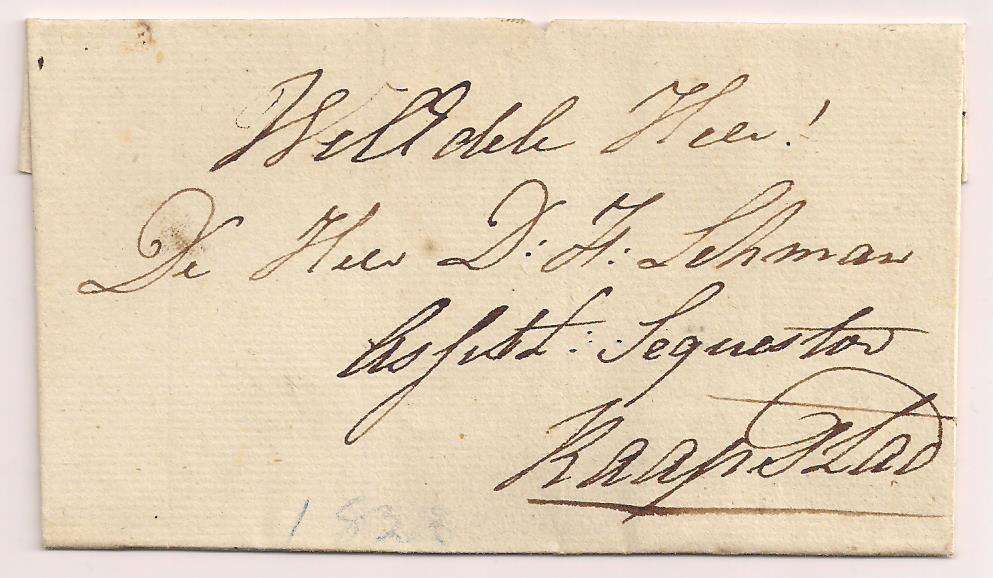 WelEdele Heer!
De Heer D: F: Lehman
Assist: Sequestor
Kaapstad
1828